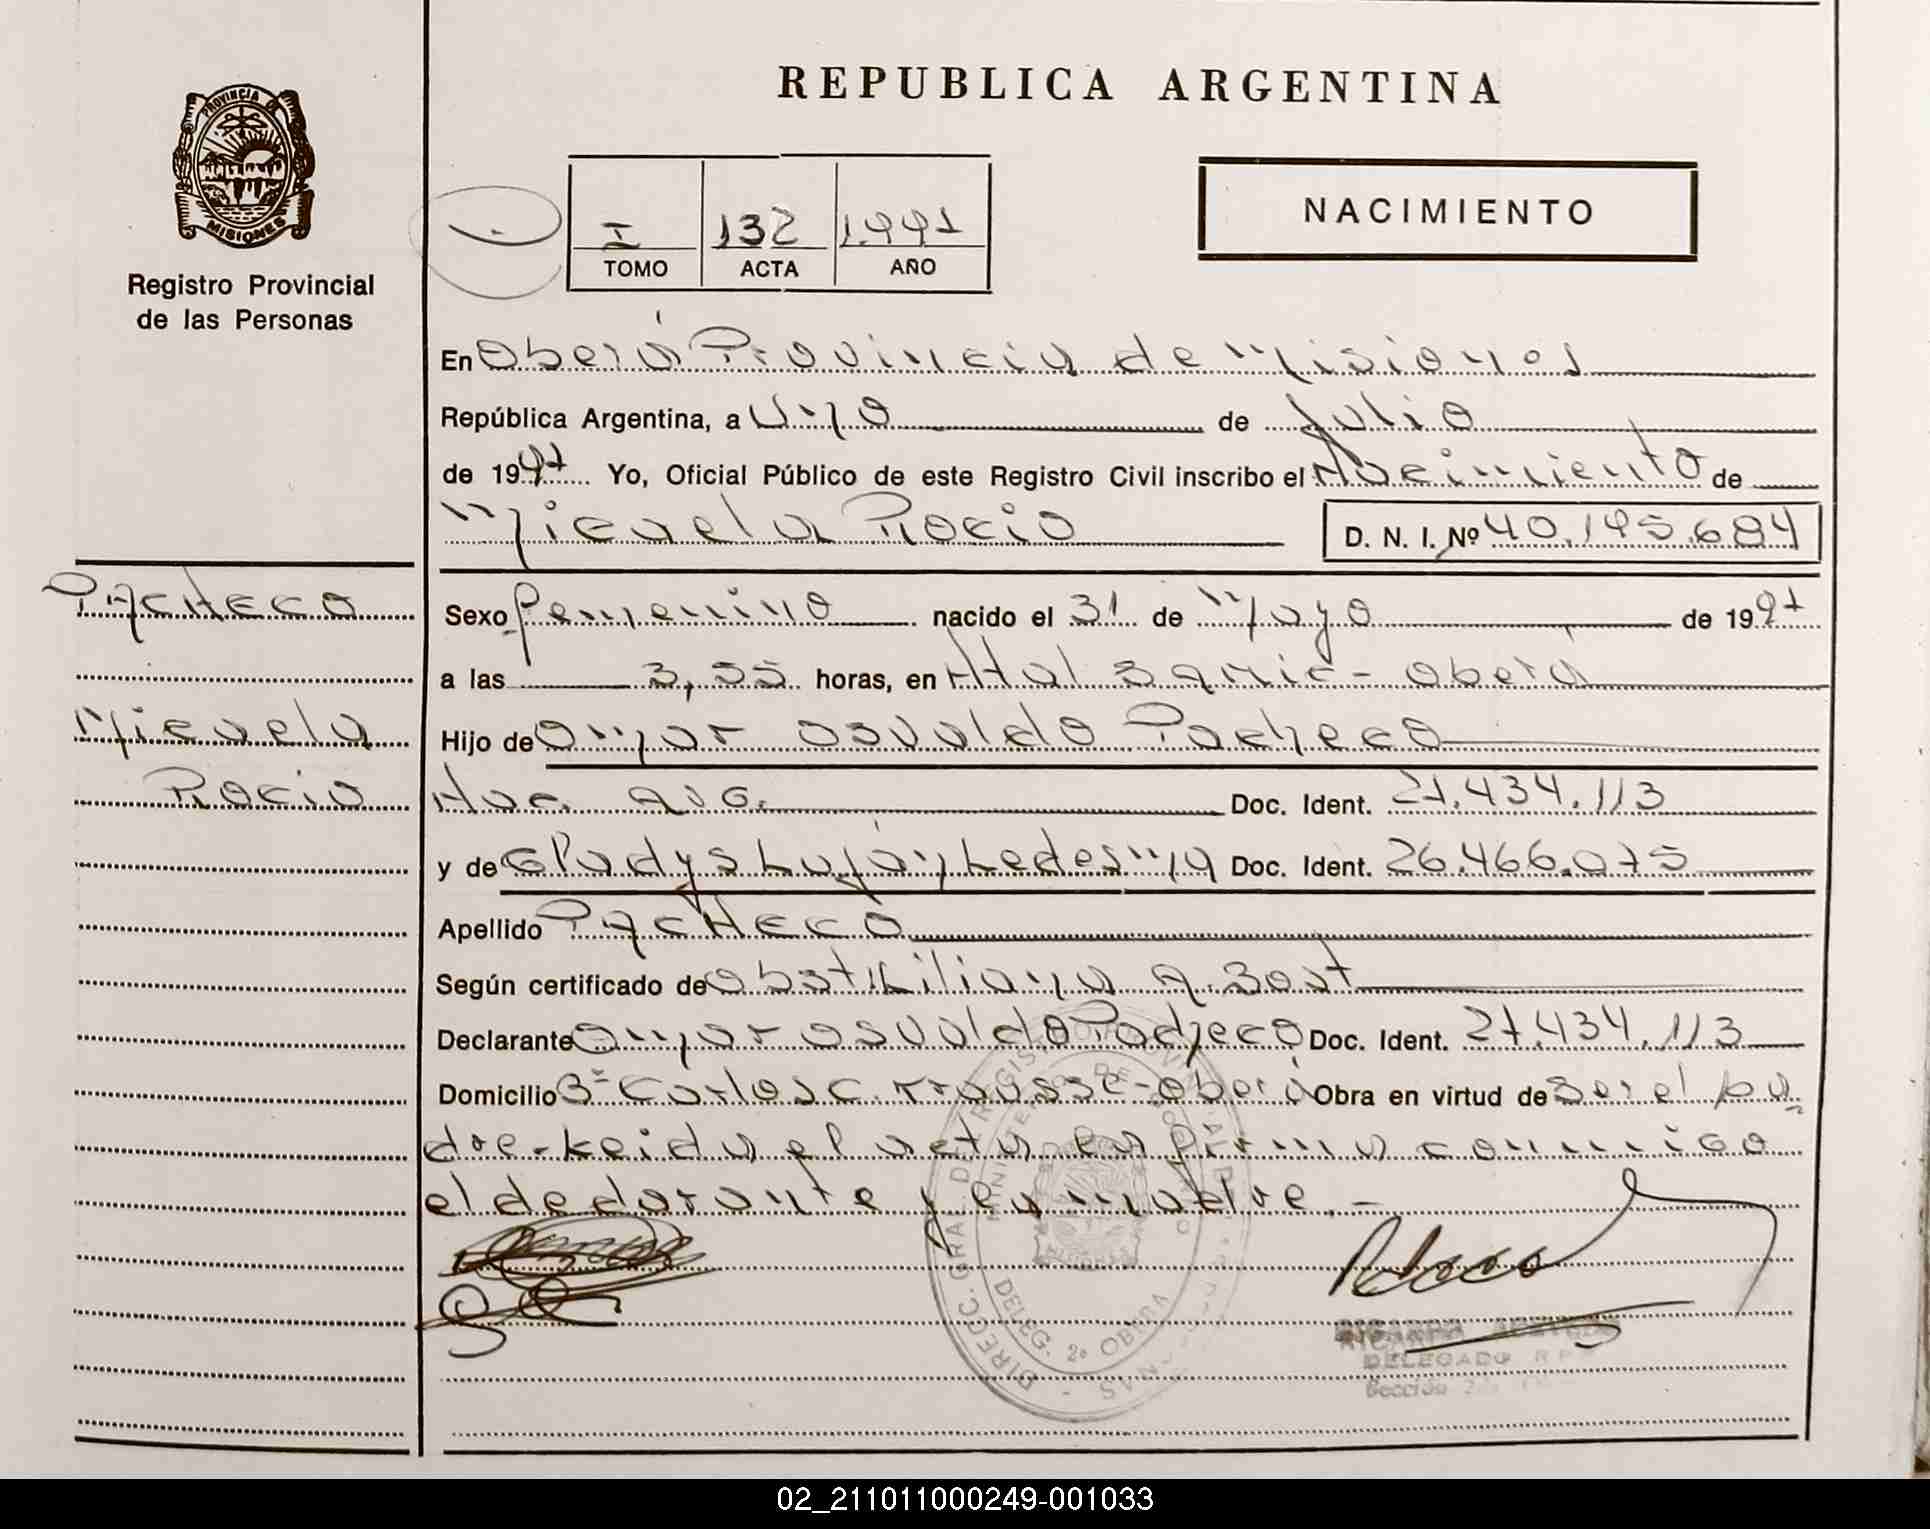 REPUBLICA ARGENTINA
PROVINCIA DE
MISIONES
Registro Provincial
de las Personas
I 132 1.997
TOMO ACTA AÑO
NACIMIENTO
En Oberá Provincia de Misiones
República Argentina, a Uno de Julio
de 1997 Yo, Oficial Público de este Registro Civil inscribo el Nacimiento de
Micaela Rocio D. N. I. Nº 40.195.684
PACHECO
Micaela
Rocio
Sexo femenino nacido el 31 de Mayo de 1997
a las 3,55 horas, en Hal Samic - Oberá
Hijo de Omar Osvaldo Pacheco
Nac. Arg. Doc. Ident. 27.434.113
y de Gladys Luján Ledesma Doc. Ident. 26.466.075
Apellido PACHECO
Según certificado de Obst. Liliana A. Bost
Declarante Omar Osvaldo Pacheco Doc. Ident. 27.434.113
Domicilio Bº Carlos C. Krausse - Oberá Obra en virtud de Ser el pa
dre - Leida el acta, la firma conmigo
el declarante y la madre. -
DIRECC. GRAL. DEL REGISTRO PROVINCIAL DE LAS PERSONAS -
DELEG. 2º OBERA
MISIONES
RICARDO ACEVEDO
DELEGADO R P
Sección 2
02_211011000249-001033